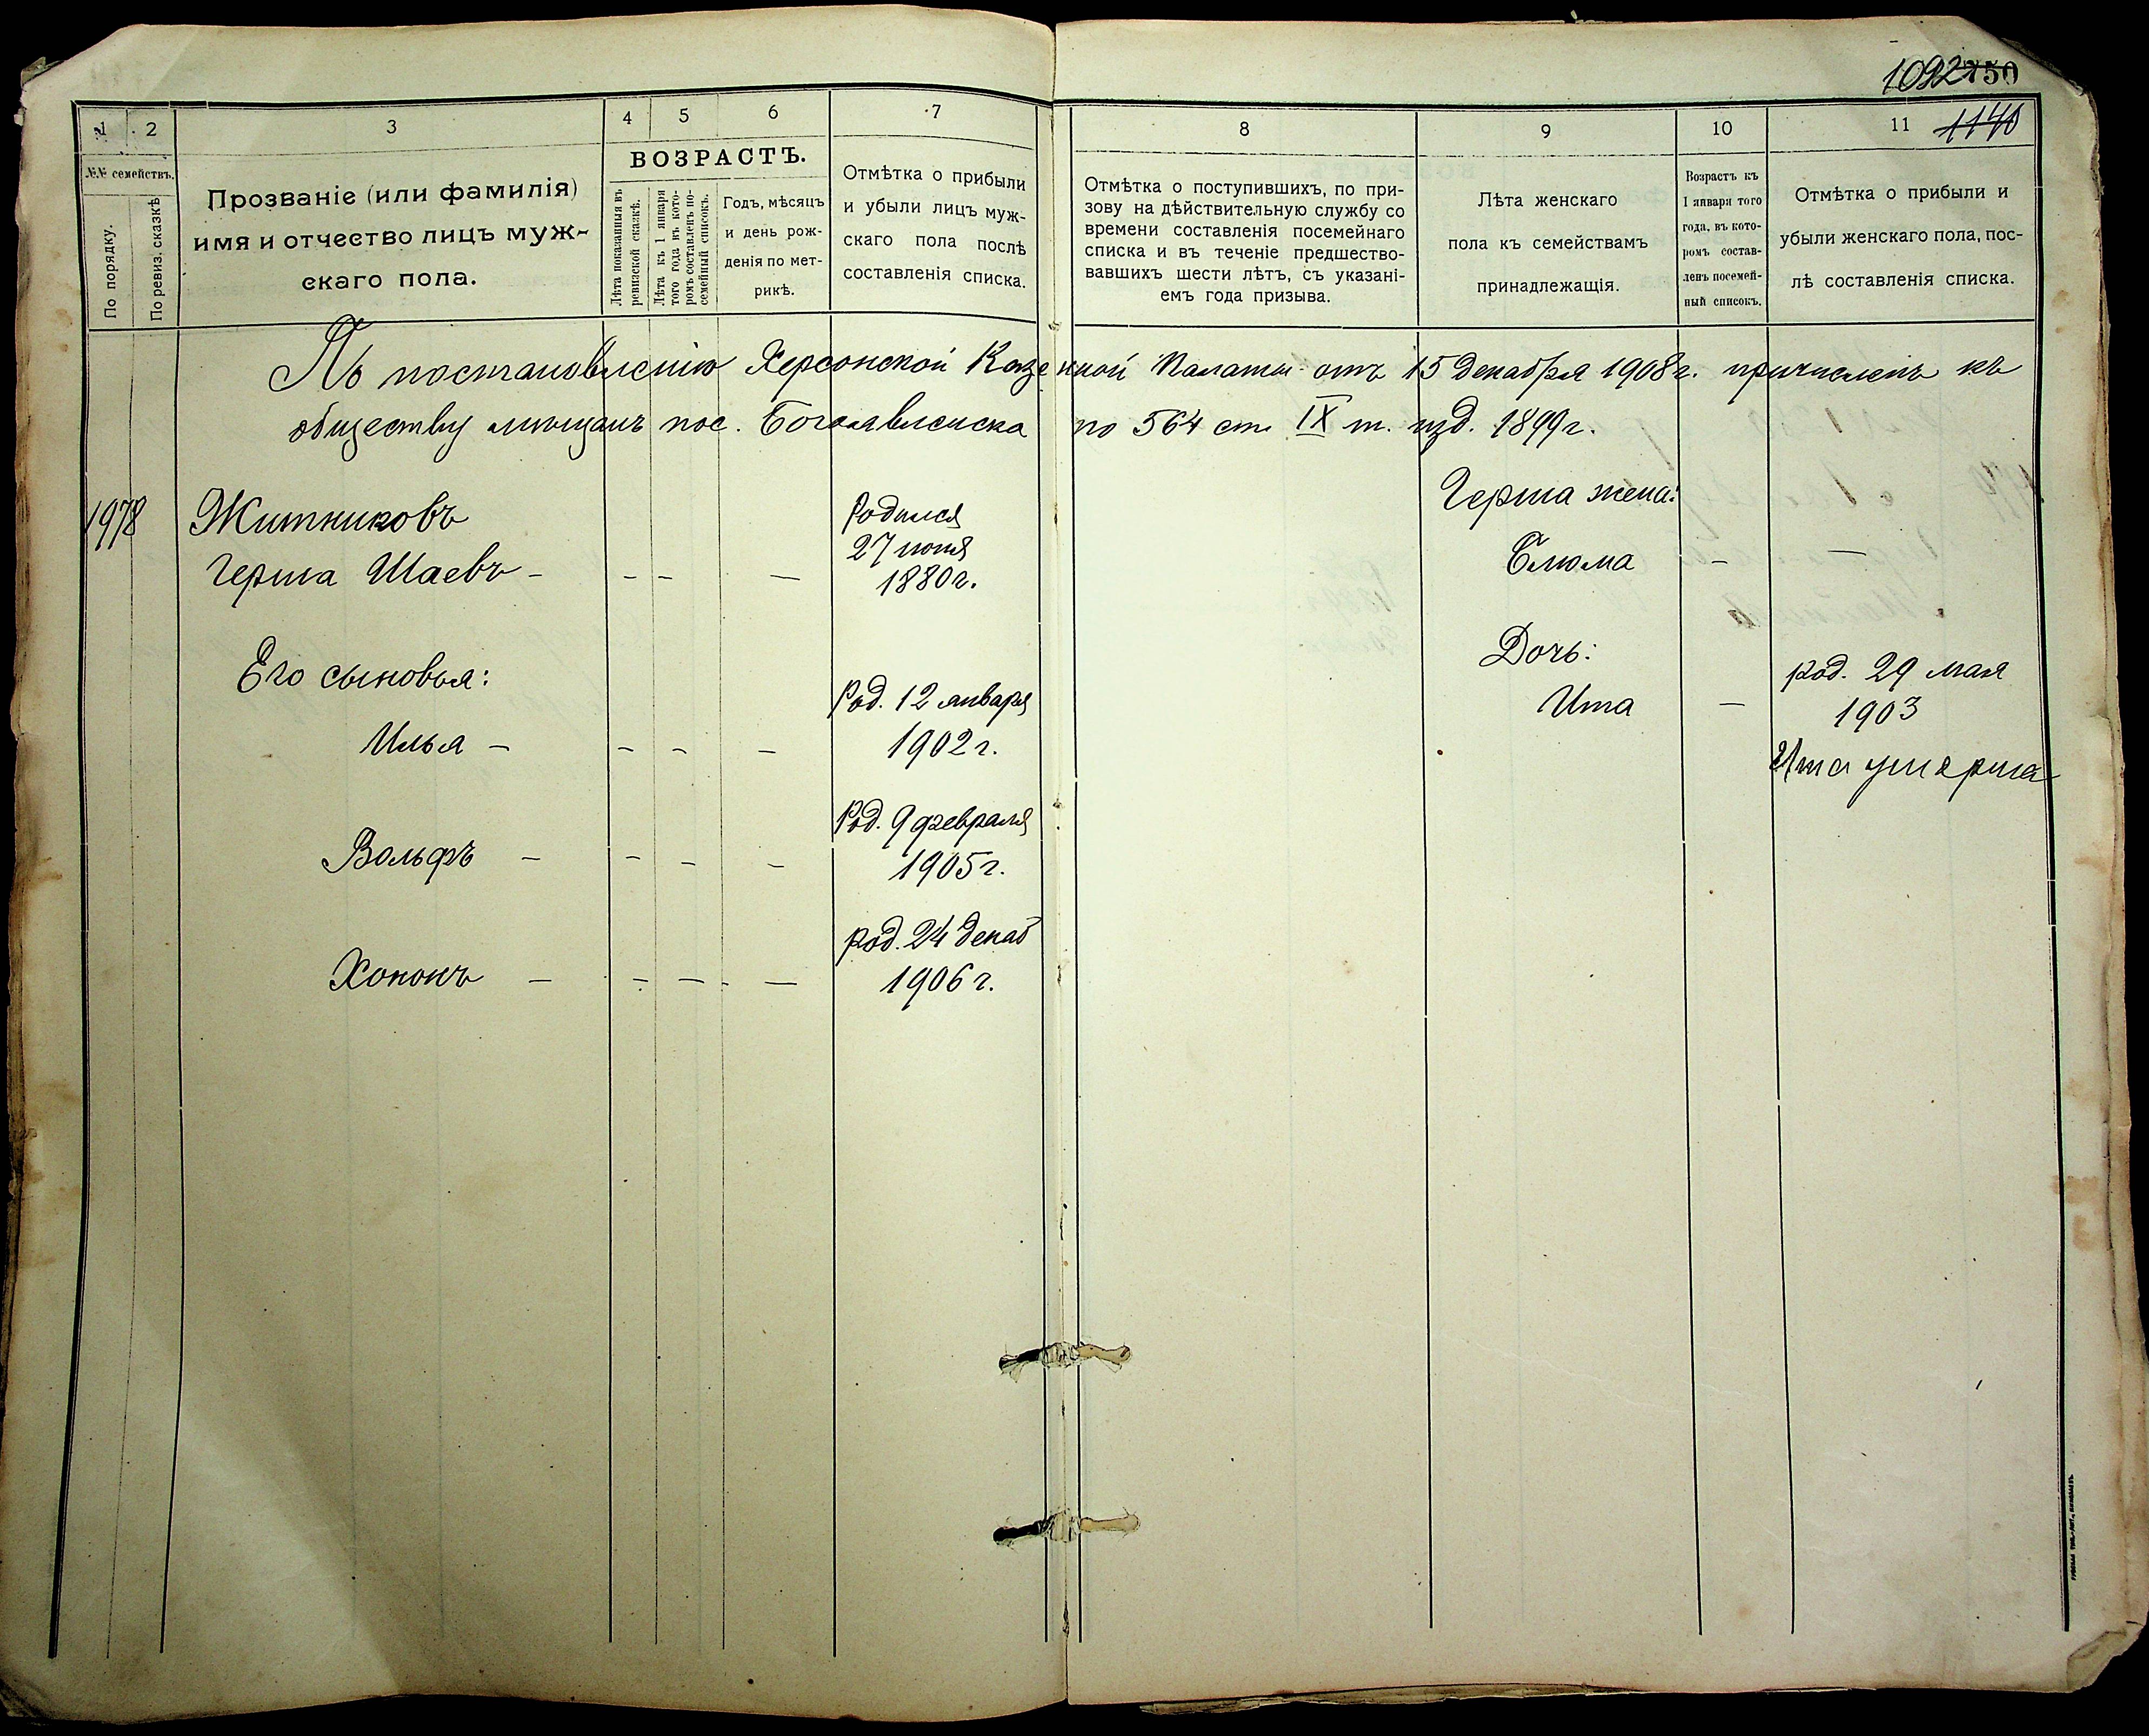 1092 750
1140
1
2
3
4
5
6
7
8
9
10
11
№№ семействъ.
По порядку.
По ревиз. сказкѣ
Прозваніе (или фамилія)
имя и отчество лицъ муж-
скаго пола.
ВОЗРАСТЪ.
Лѣта показанныя въ
ревизской сказкѣ.
Лѣта къ 1 января
того года въ кото-
ромъ составленъ по-
семейный списокъ.
Годъ, мѣсяцъ
и день рож-
денія по мет-
рикѣ.
Отмѣтка о прибыли
и убыли лицъ муж-
скаго пола послѣ
составленія списка.
Отмѣтка о поступившихъ, по при-
зову на дѣйствительную службу со
времени составленія посемейнаго
списка и въ теченіе предшество-
вавшихъ шести лѣтъ, съ указані-
емъ года призыва.
Лѣта женскаго
пола къ семействамъ
принадлежащія.
Возрастъ къ
1 января того
года, въ кото-
ромъ состав-
ленъ посемей-
ный списокъ.
Отмѣтка о прибыли и
убыли женскаго пола, пос-
лѣ составленія списка.
По постановленію Херсонской Казенной Палаты отъ 15 декабря 1908 г. причисленъ къ
обществу мѣщанъ пос. Богоявленска по 564 ст. IX т. изд. 1899 г.
1978 Житниковъ
Герша Шаевъ - - - —
Родился
27 июня
1880 г.
Герша жена:
Блюма - —
Его сыновья:
Илья - - - -
Род. 12 января
1902 г.
Дочь:
Ита —
род. 29 мая
1903
Ита умерла
Вольфъ - - - -
Род. 9 февраля
1905 г.
Хононъ - - - —
род. 24 декаб
1906 г.